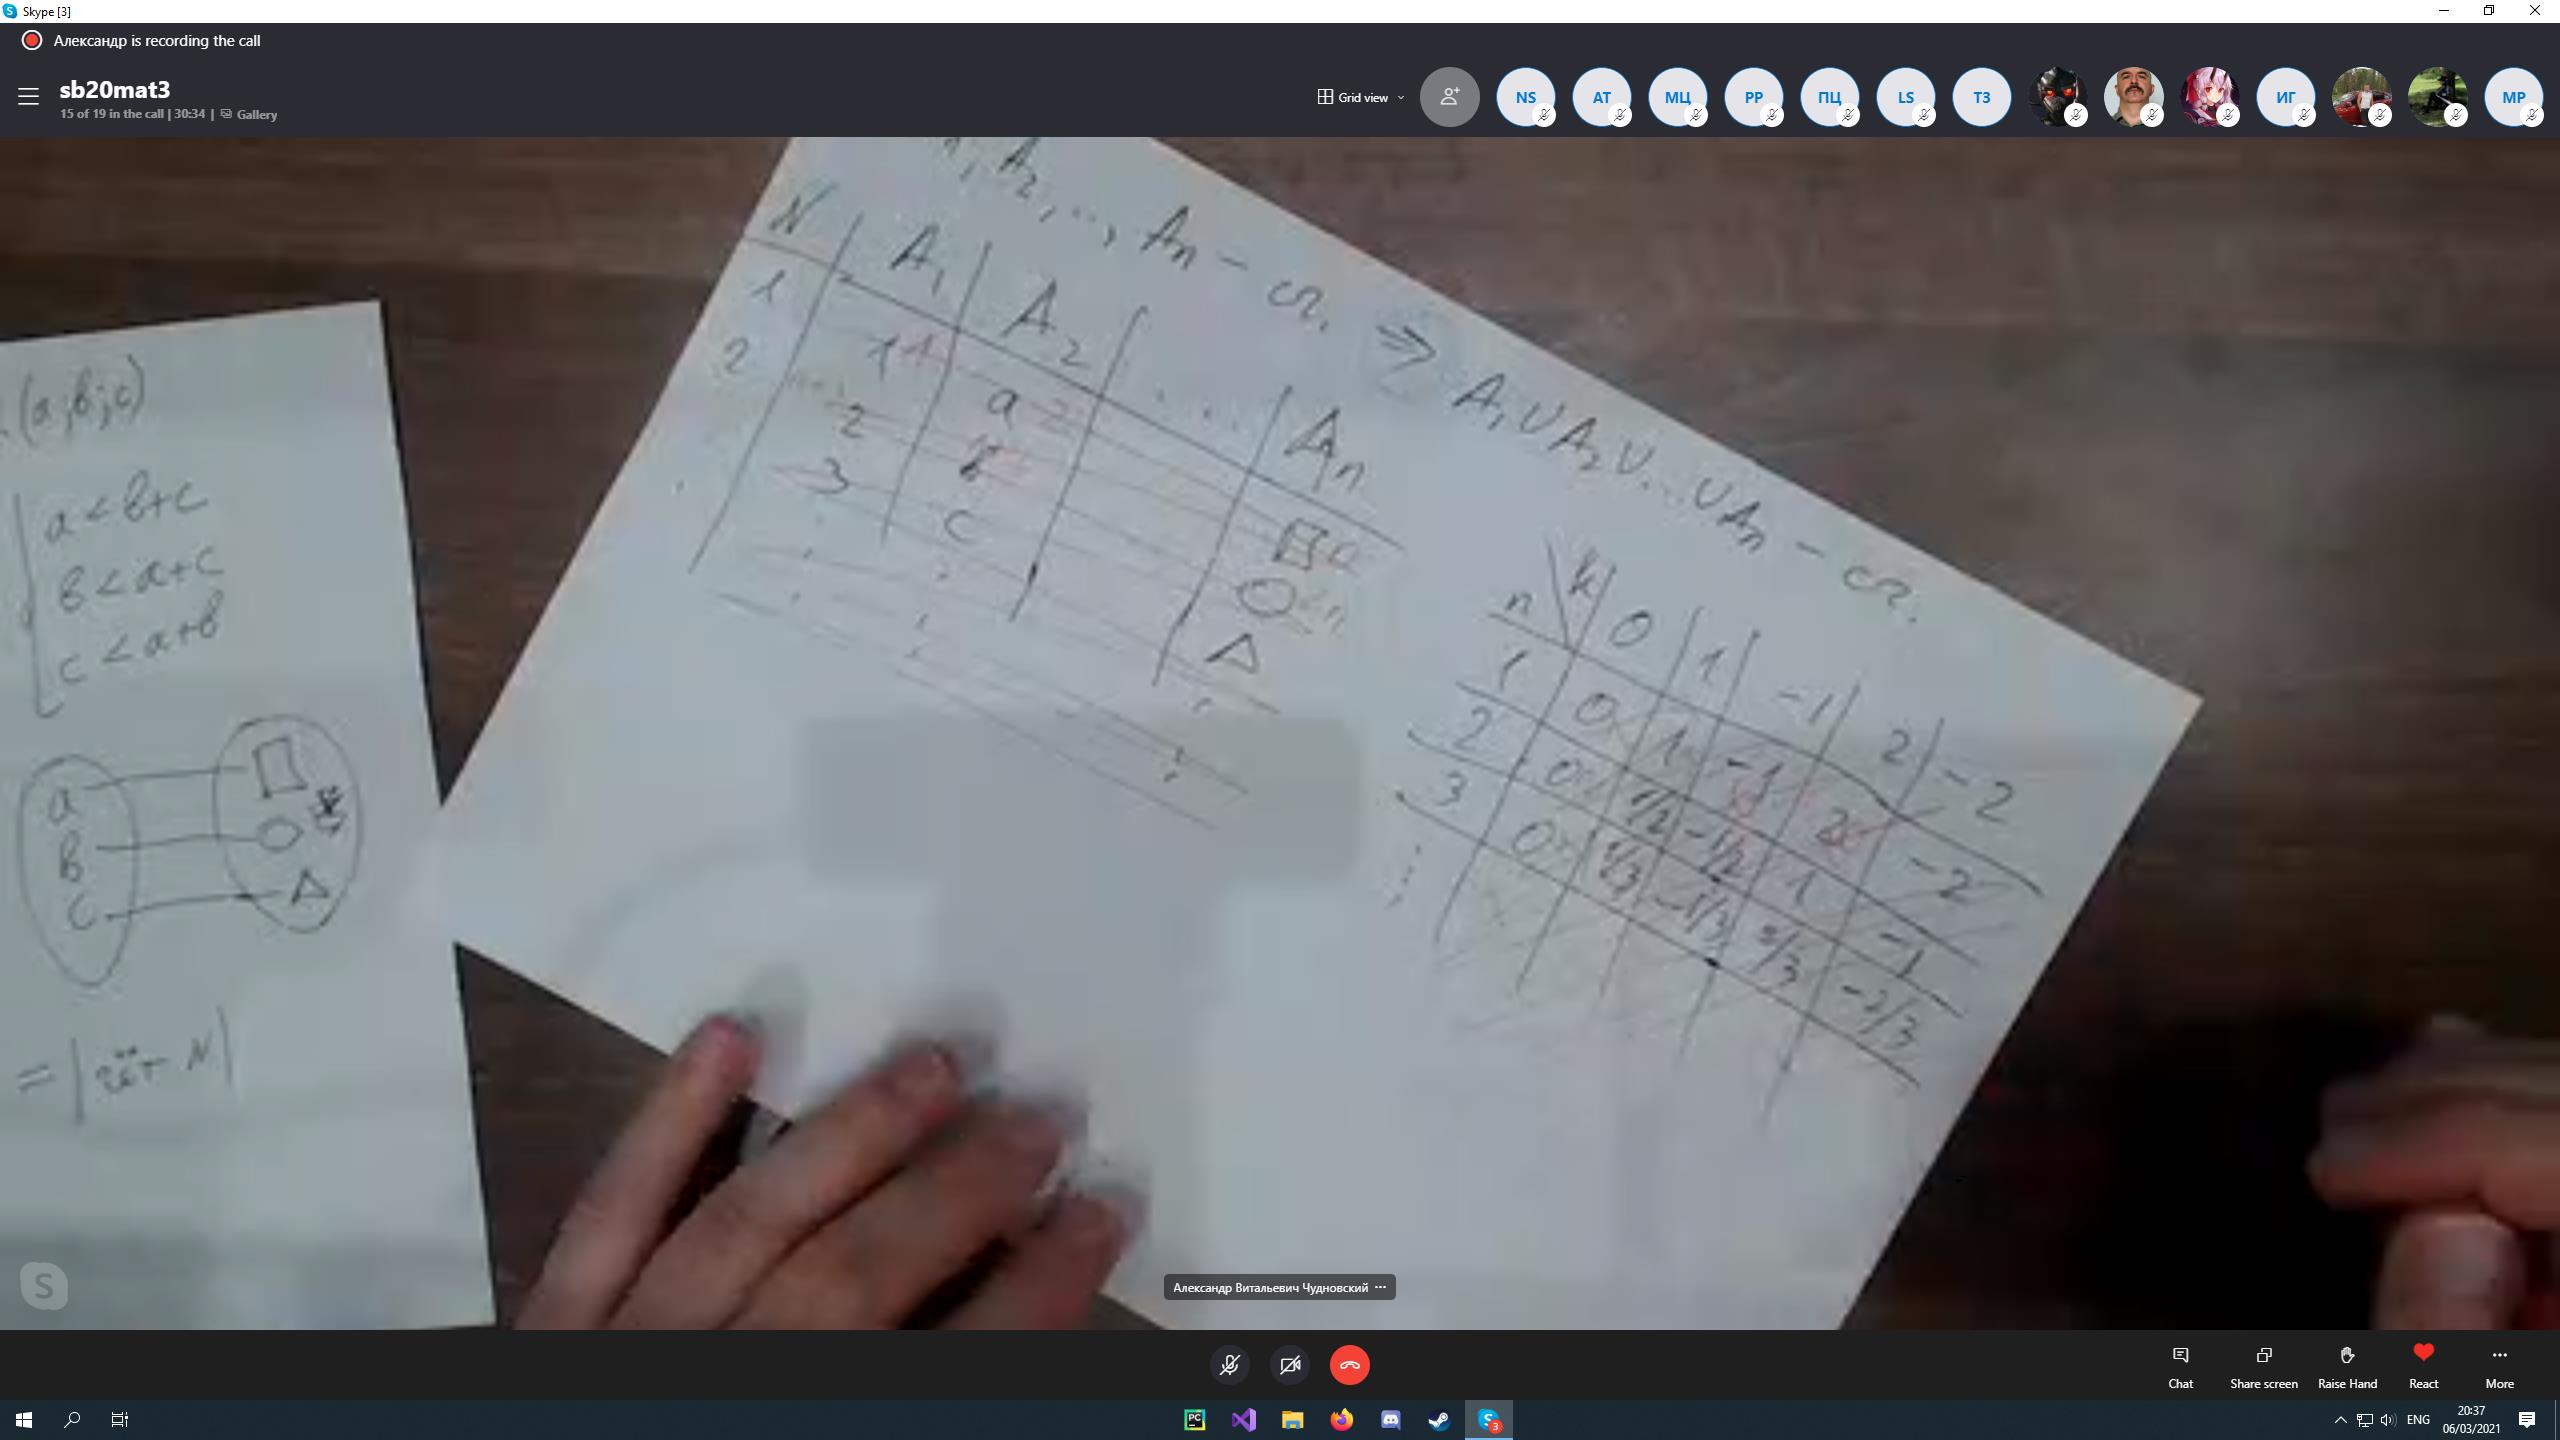 Skype [3]
Александр is recording the call
sb20mat3
15 of 19 in the call | 30:34 | Gallery
Grid view
NS AT МЦ PP ПЦ LS ТЗ ИГ MP
(a;b;c)
a < b+c
b < a+c
c < a+b
a
b
c
= |чёт N|
A₂, ..., Aₙ – сч. ⇒ A₁∪A₂∪...∪Aₙ – сч.
N A₁ A₂ ... Aₙ
1 1 a
2 2 b
3 c
n k 0 1 -1 2 -2
1 0 1 -1 2 -2
2 0 1/2 -1/2 1 -1
3 0 1/3 -1/3 2/3 -2/3
Александр Витальевич Чудновский
Chat Share screen Raise Hand React More
PC
S 3
ENG
20:37
06/03/2021